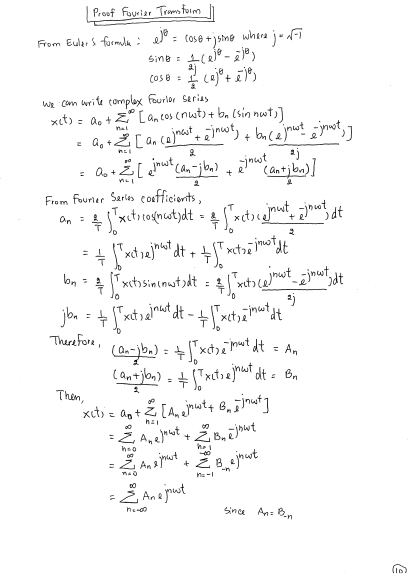 Proof Fourier Transform
From Euler's formula : e^{jθ} = cosθ + jsinθ where j = √-1
sinθ = 1/2j (e^{jθ} - e^{-jθ})
cosθ = 1/2 (e^{jθ} + e^{-jθ})
We can write complex Fourier Series
x(t) = a₀ + Σ_{n=1}^{∞} [an cos(nωt) + bn (sin nωt)]
= a₀ + Σ_{n=1}^{∞} [an (e^{jnωt} + e^{-jnωt})/2 + bn (e^{jnωt} - e^{-jnωt})/2j]
= a₀ + Σ_{n=1}^{∞} [e^{jnωt} (an-jbn)/2 + e^{-jnωt} (an+jbn)/2]
From Fourier Series coefficients,
an = 2/T ∫₀^T x(t) cos(nωt)dt = 2/T ∫₀^T x(t) (e^{jnωt} + e^{-jnωt})/2 dt
= 1/T ∫₀^T x(t) e^{jnωt} dt + 1/T ∫₀^T x(t) e^{-jnωt} dt
bn = 2/T ∫₀^T x(t) sin(nωt)dt = 2/T ∫₀^T x(t) (e^{jnωt} - e^{-jnωt})/2j dt
jbn = 1/T ∫₀^T x(t) e^{jnωt} dt - 1/T ∫₀^T x(t) e^{-jnωt} dt
Therefore,
(an-jbn)/2 = 1/T ∫₀^T x(t) e^{-jnωt} dt = An
(an+jbn)/2 = 1/T ∫₀^T x(t) e^{jnωt} dt = Bn
Then,
x(t) = a₀ + Σ_{n=1}^{∞} [An e^{jnωt} + Bn e^{-jnωt}]
= Σ_{n=0}^{∞} An e^{jnωt} + Σ_{n=1}^{∞} Bn e^{-jnωt}
= Σ_{n=0}^{∞} An e^{jnωt} + Σ_{n=-1}^{-∞} B_{-n} e^{jnωt}
= Σ_{n=-∞}^{∞} An e^{jnωt}
since An = B_{-n}
10